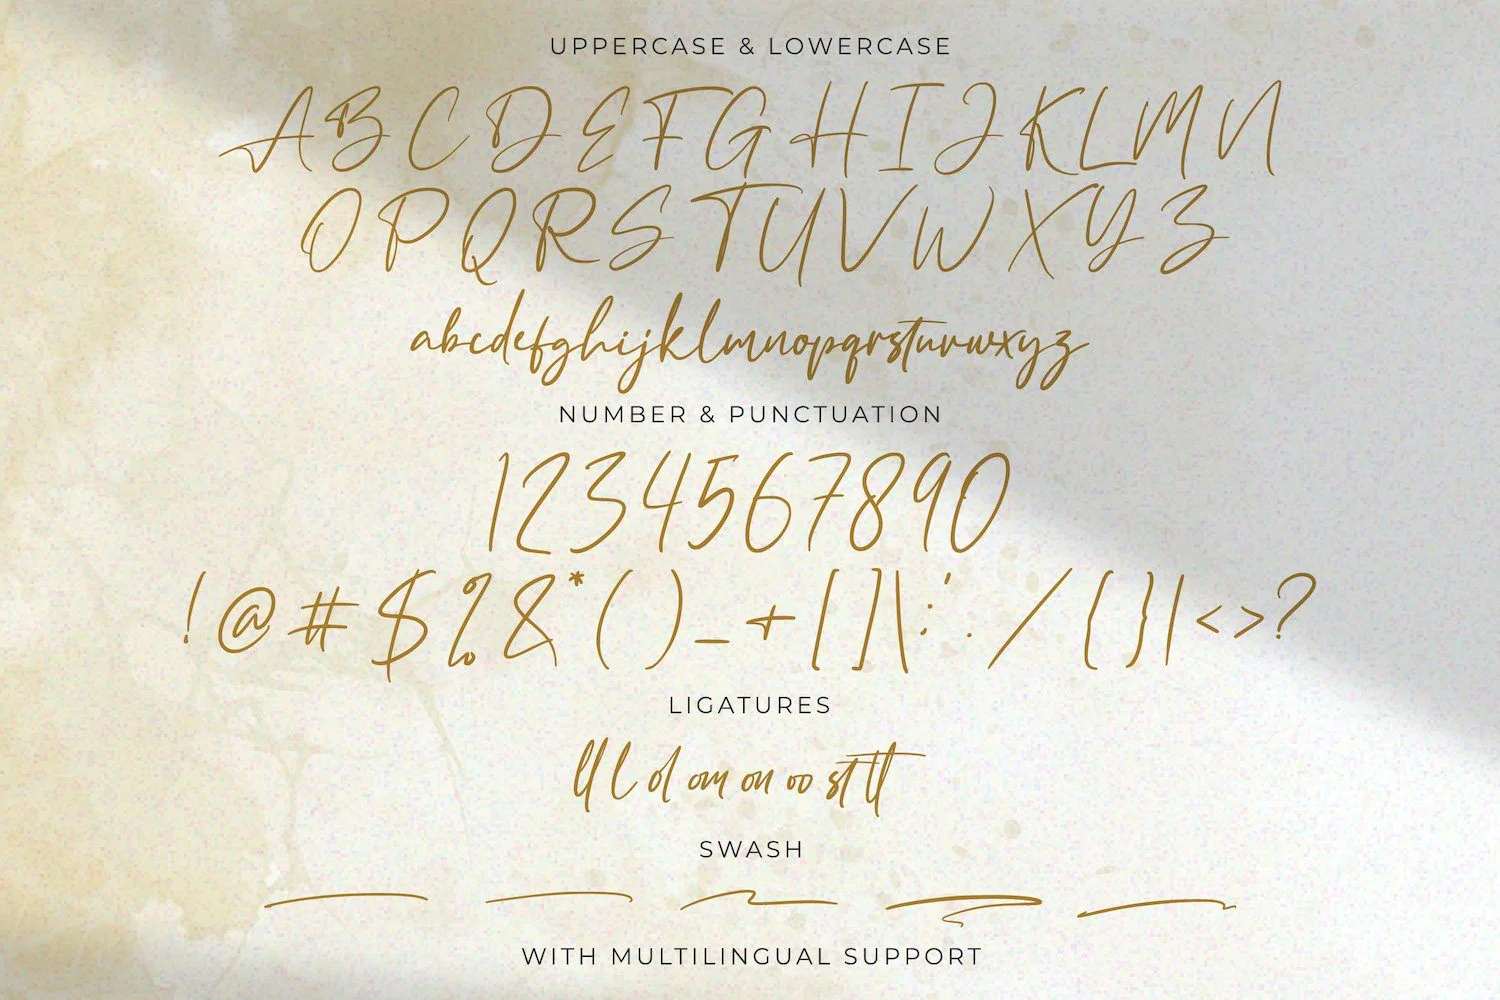 UPPERCASE & LOWERCASE
ABCDEFGHIJKLMN
OPQRSTUVWXYZ
abcdefghijklmnopqrstuvwxyz
NUMBER & PUNCTUATION
1234567890
!@#$%&*()_+[]\:'./{}|<>?
LIGATURES
ll l ol om on oo st tt
SWASH
WITH MULTILINGUAL SUPPORT